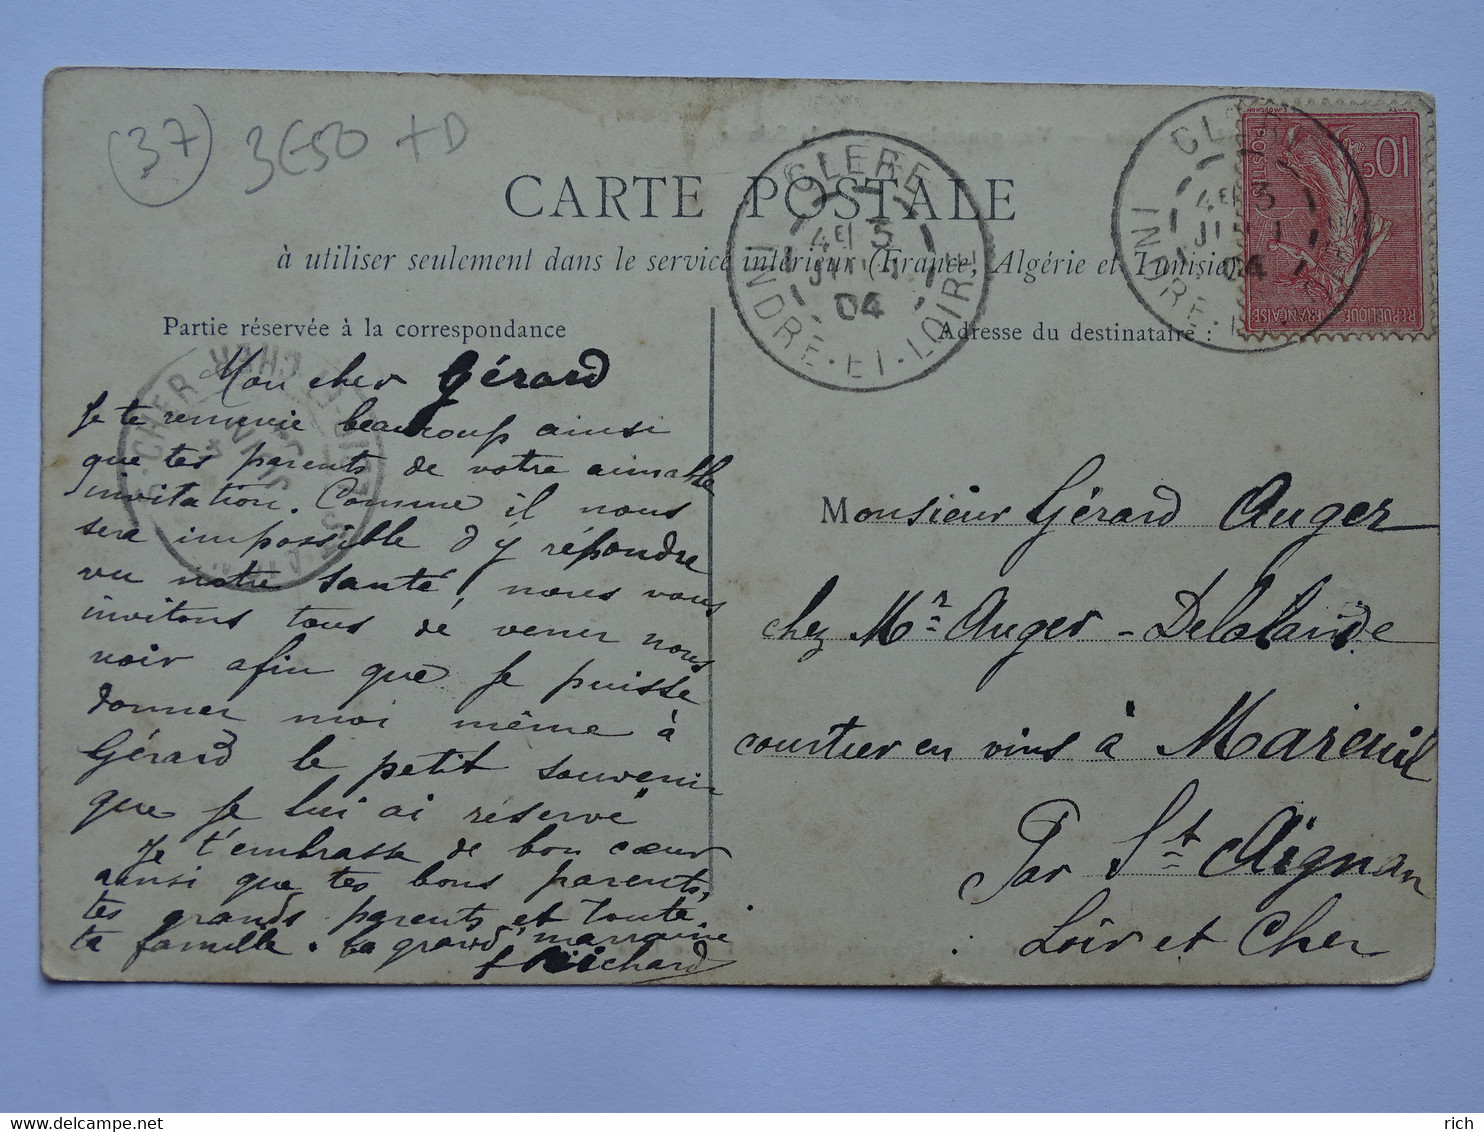 (37) 3E50 TD
CARTE POSTALE
à utiliser seulement dans le service intérieur (France, Algérie et Tunisie
Partie réservée à la correspondance
Adresse du destinataire :
CLERE
4E 3
JUIN
04
INDRE-ET-LOIRE
CLERE
4E 3
JUIN
04
INDRE-
10c
POSTES
REPUBLIQUE FRANÇAISE
CHER
Mon cher Gérard
Je te remercie beaucoup ainsi
que tes parents de votre aimable
invitation. Comme il nous
sera impossible d'y répondre
vu notre santé, nous vous
invitons tous de venir nous
voir afin que je puisse
donner moi même à
Gérard le petit souvenir
que je lui ai réservé
Je t'embrasse de bon cœur
ainsi que tes bons parents,
tes grands parents et toute
ta famille. ta grand' marraine
Richard
Monsieur Gérard Auger
chez Mr Auger-Delalande
courtier en vins à Mareuil
Par St Aignan
Loir et Cher
rich